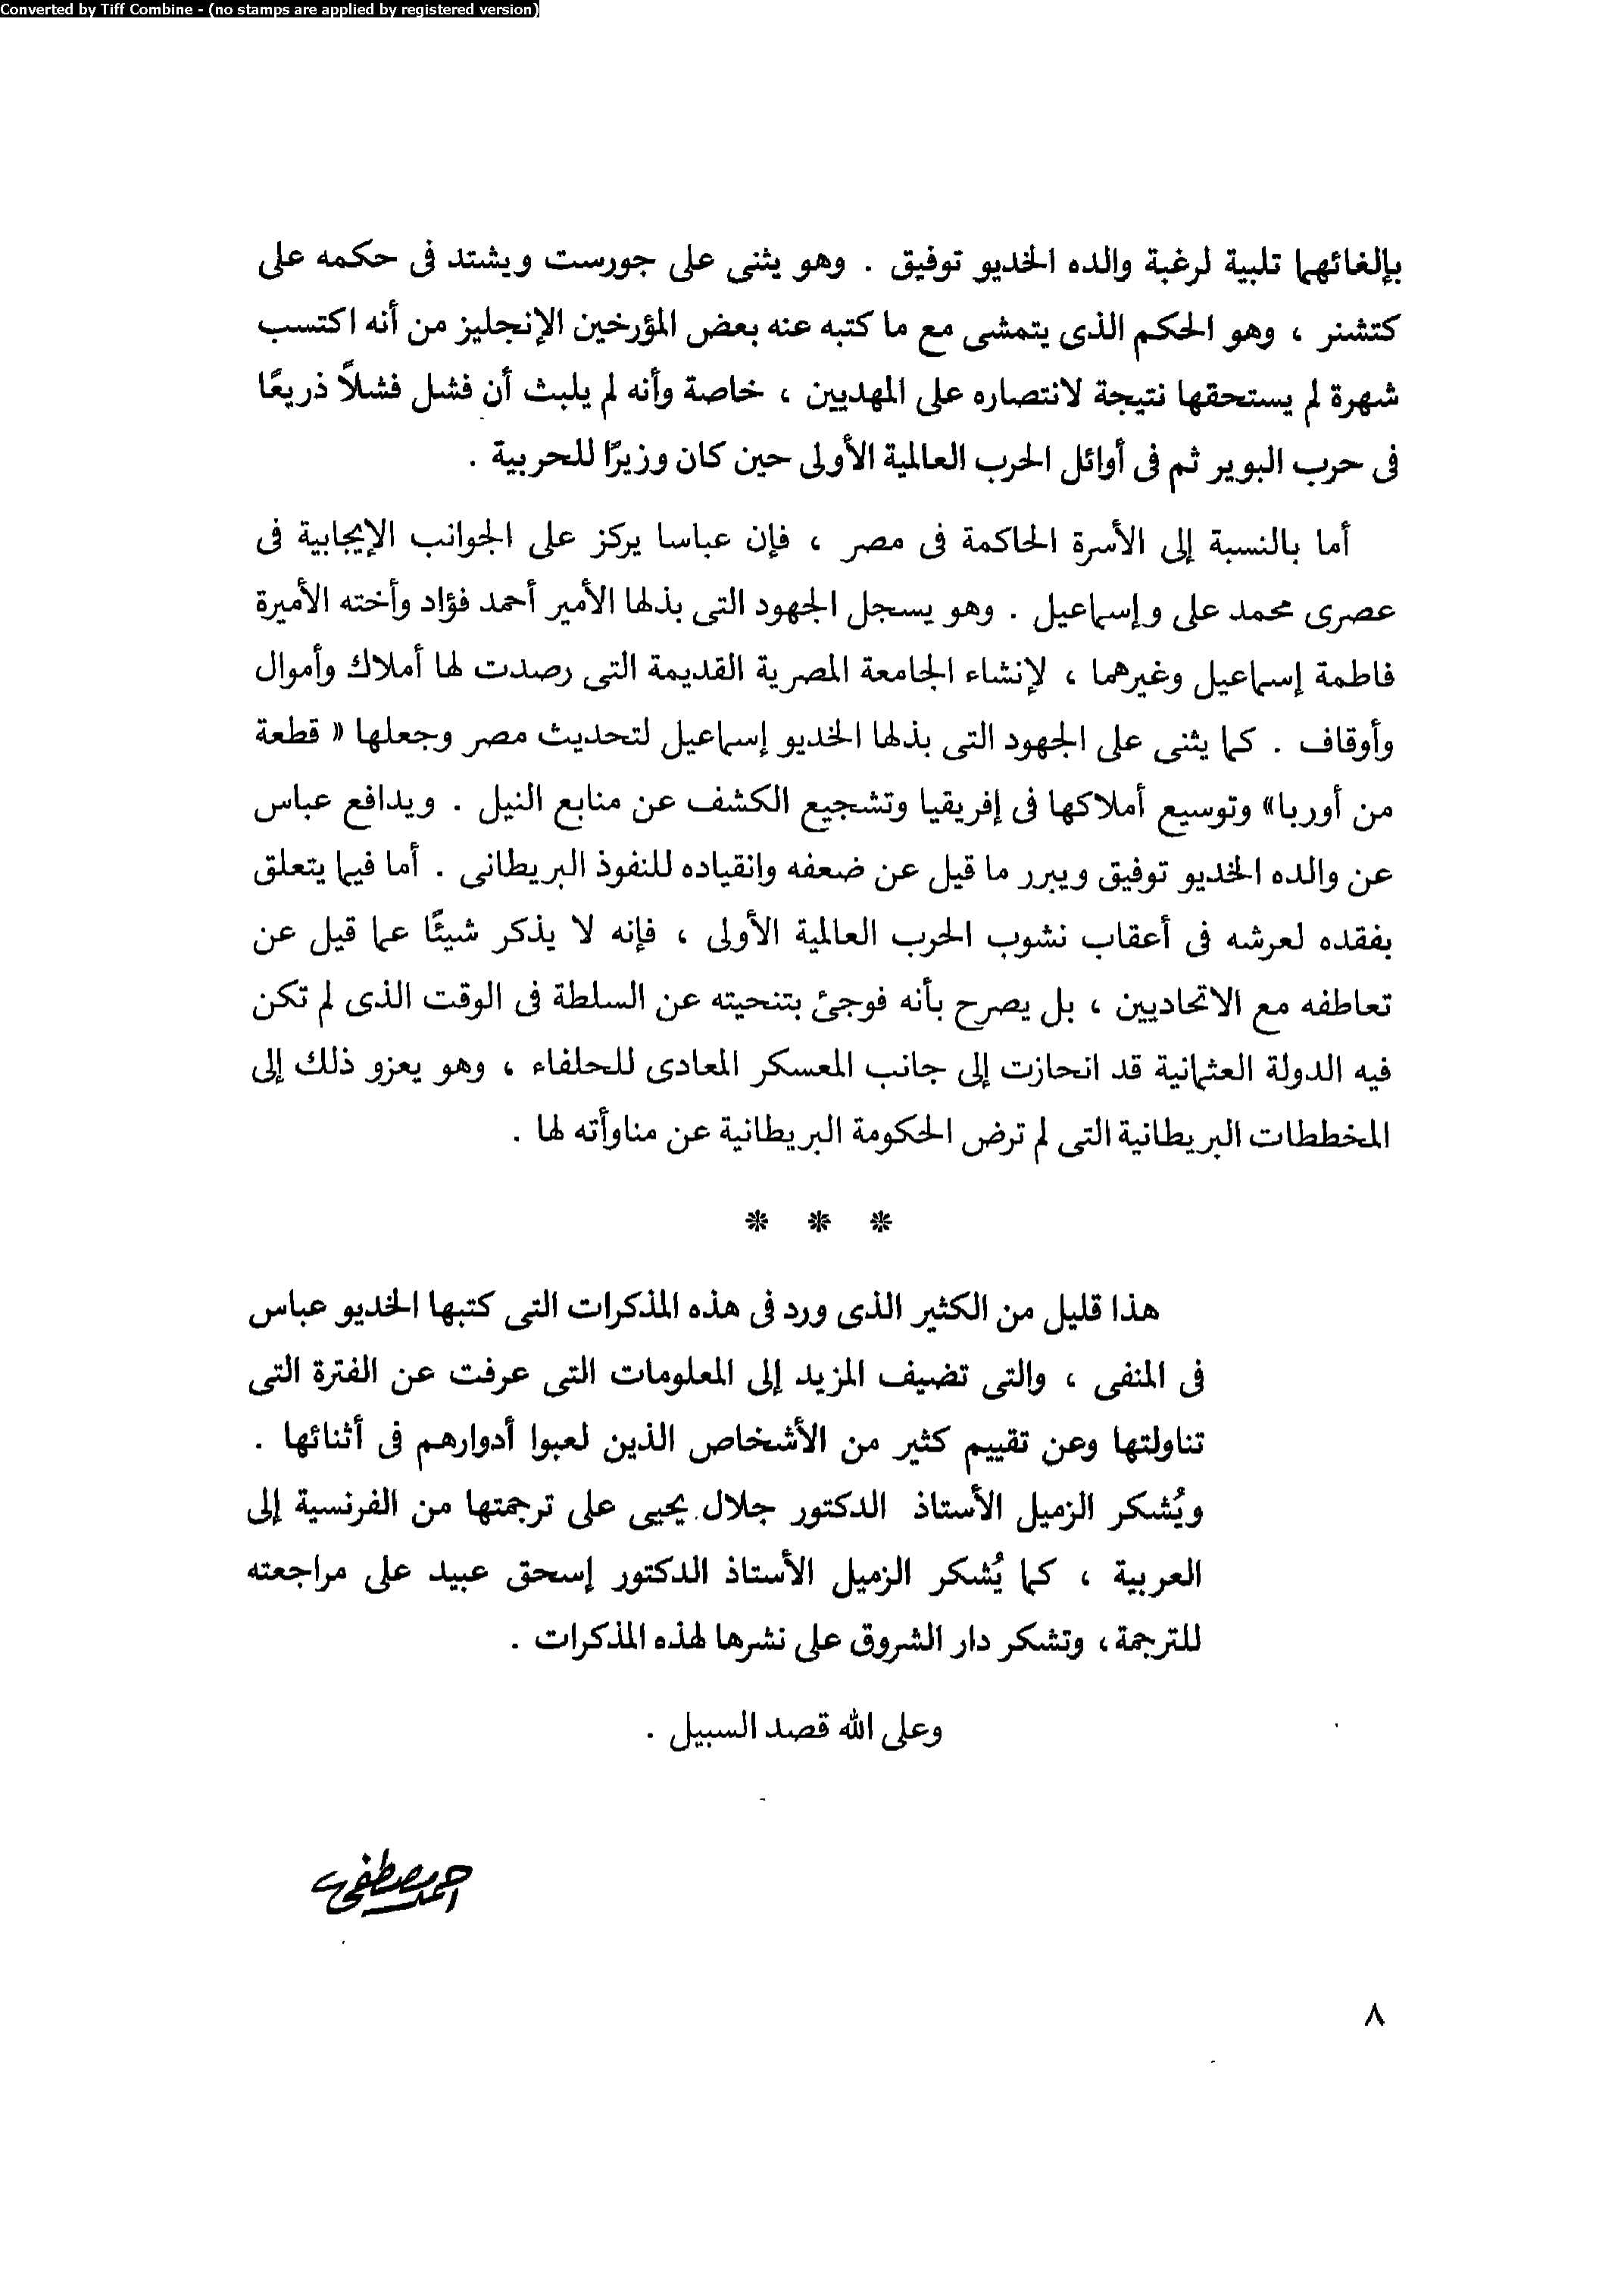 Converted by Tiff Combine - (no stamps are applied by registered version)
بإلغائهما تلبية لرغبة والده الخديو توفيق . وهو يثنى على جورست ويشتد فى حكمه على
كتشنر ، وهو الحكم الذى يتمشى مع ما كتبه عنه بعض المؤرخين الإنجليز من أنه اكتسب
شهرة لم يستحقها نتيجة لانتصاره على المهديين ، خاصة وأنه لم يلبث أن فشل فشلاً ذريعًا
فى حرب البوير ثم فى أوائل الحرب العالمية الأولى حين كان وزيرًا للحربية .
أما بالنسبة إلى الأسرة الحاكمة فى مصر ، فإن عباسا يركز على الجوانب الإيجابية فى
عصرى محمد على وإسماعيل . وهو يسجل الجهود التى بذلها الأمير أحمد فؤاد وأخته الأميرة
فاطمة إسماعيل وغيرهما ، لإنشاء الجامعة المصرية القديمة التى رصدت لها أملاك وأموال
وأوقاف . كما يثنى على الجهود التى بذلها الخديو إسماعيل لتحديث مصر وجعلها « قطعة
من أوربا» وتوسيع أملاكها فى إفريقيا وتشجيع الكشف عن منابع النيل . ويدافع عباس
عن والده الخديو توفيق ويبرر ما قيل عن ضعفه وانقياده للنفوذ البريطانى . أما فيما يتعلق
بفقده لعرشه فى أعقاب نشوب الحرب العالمية الأولى ، فإنه لا يذكر شيئًا عما قيل عن
تعاطفه مع الاتحاديين ، بل يصرح بأنه فوجئ بتنحيته عن السلطة فى الوقت الذى لم تكن
فيه الدولة العثمانية قد انحازت إلى جانب المعسكر المعادى للحلفاء ، وهو يعزو ذلك إلى
المخططات البريطانية التى لم ترض الحكومة البريطانية عن مناوأته لها .
* * *
هذا قليل من الكثير الذى ورد فى هذه المذكرات التى كتبها الخديو عباس
فى المنفى ، والتى تضيف المزيد إلى المعلومات التى عرفت عن الفترة التى
تناولتها وعن تقييم كثير من الأشخاص الذين لعبوا أدوارهم فى أثنائها .
ويُشكر الزميل الأستاذ الدكتور جلال يحيى على ترجمتها من الفرنسية إلى
العربية ، كما يُشكر الزميل الأستاذ الدكتور إسحق عبيد على مراجعته
للترجمة ، وتشكر دار الشروق على نشرها لهذه المذكرات .
وعلى الله قصد السبيل .
احمد مصطفى
٨